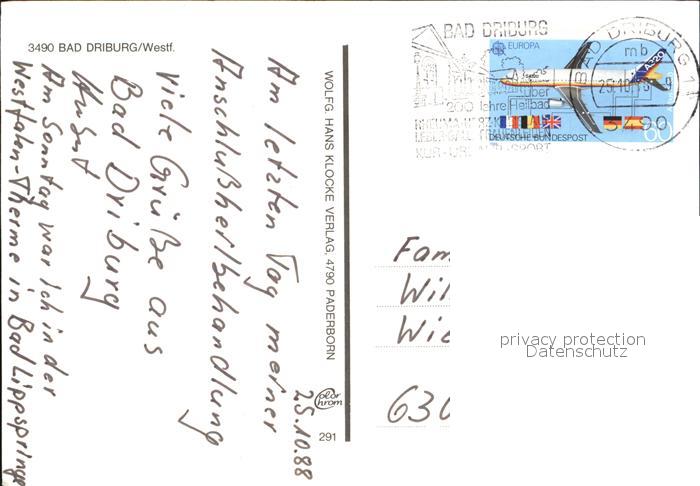 3490 BAD DRIBURG/Westf.
25.10.88
Am letzten Tag meiner
Anschlußheilbehandlung
Viele Grüße aus
Bad Driburg
August
Am Sonntag war ich in der
Westfalen-Therme in Bad Lippspringe
WOLFG. HANS KLOCKE VERLAG, 4790 PADERBORN
Color Chrom
291
BAD DRIBURG
über
200 Jahre Heilbad
EUROPA
A320
DEUTSCHE BUNDESPOST
60
BAD DRIBURG 1
mb
3490
Fam
Wil
Wie
630
privacy protection
Datenschutz